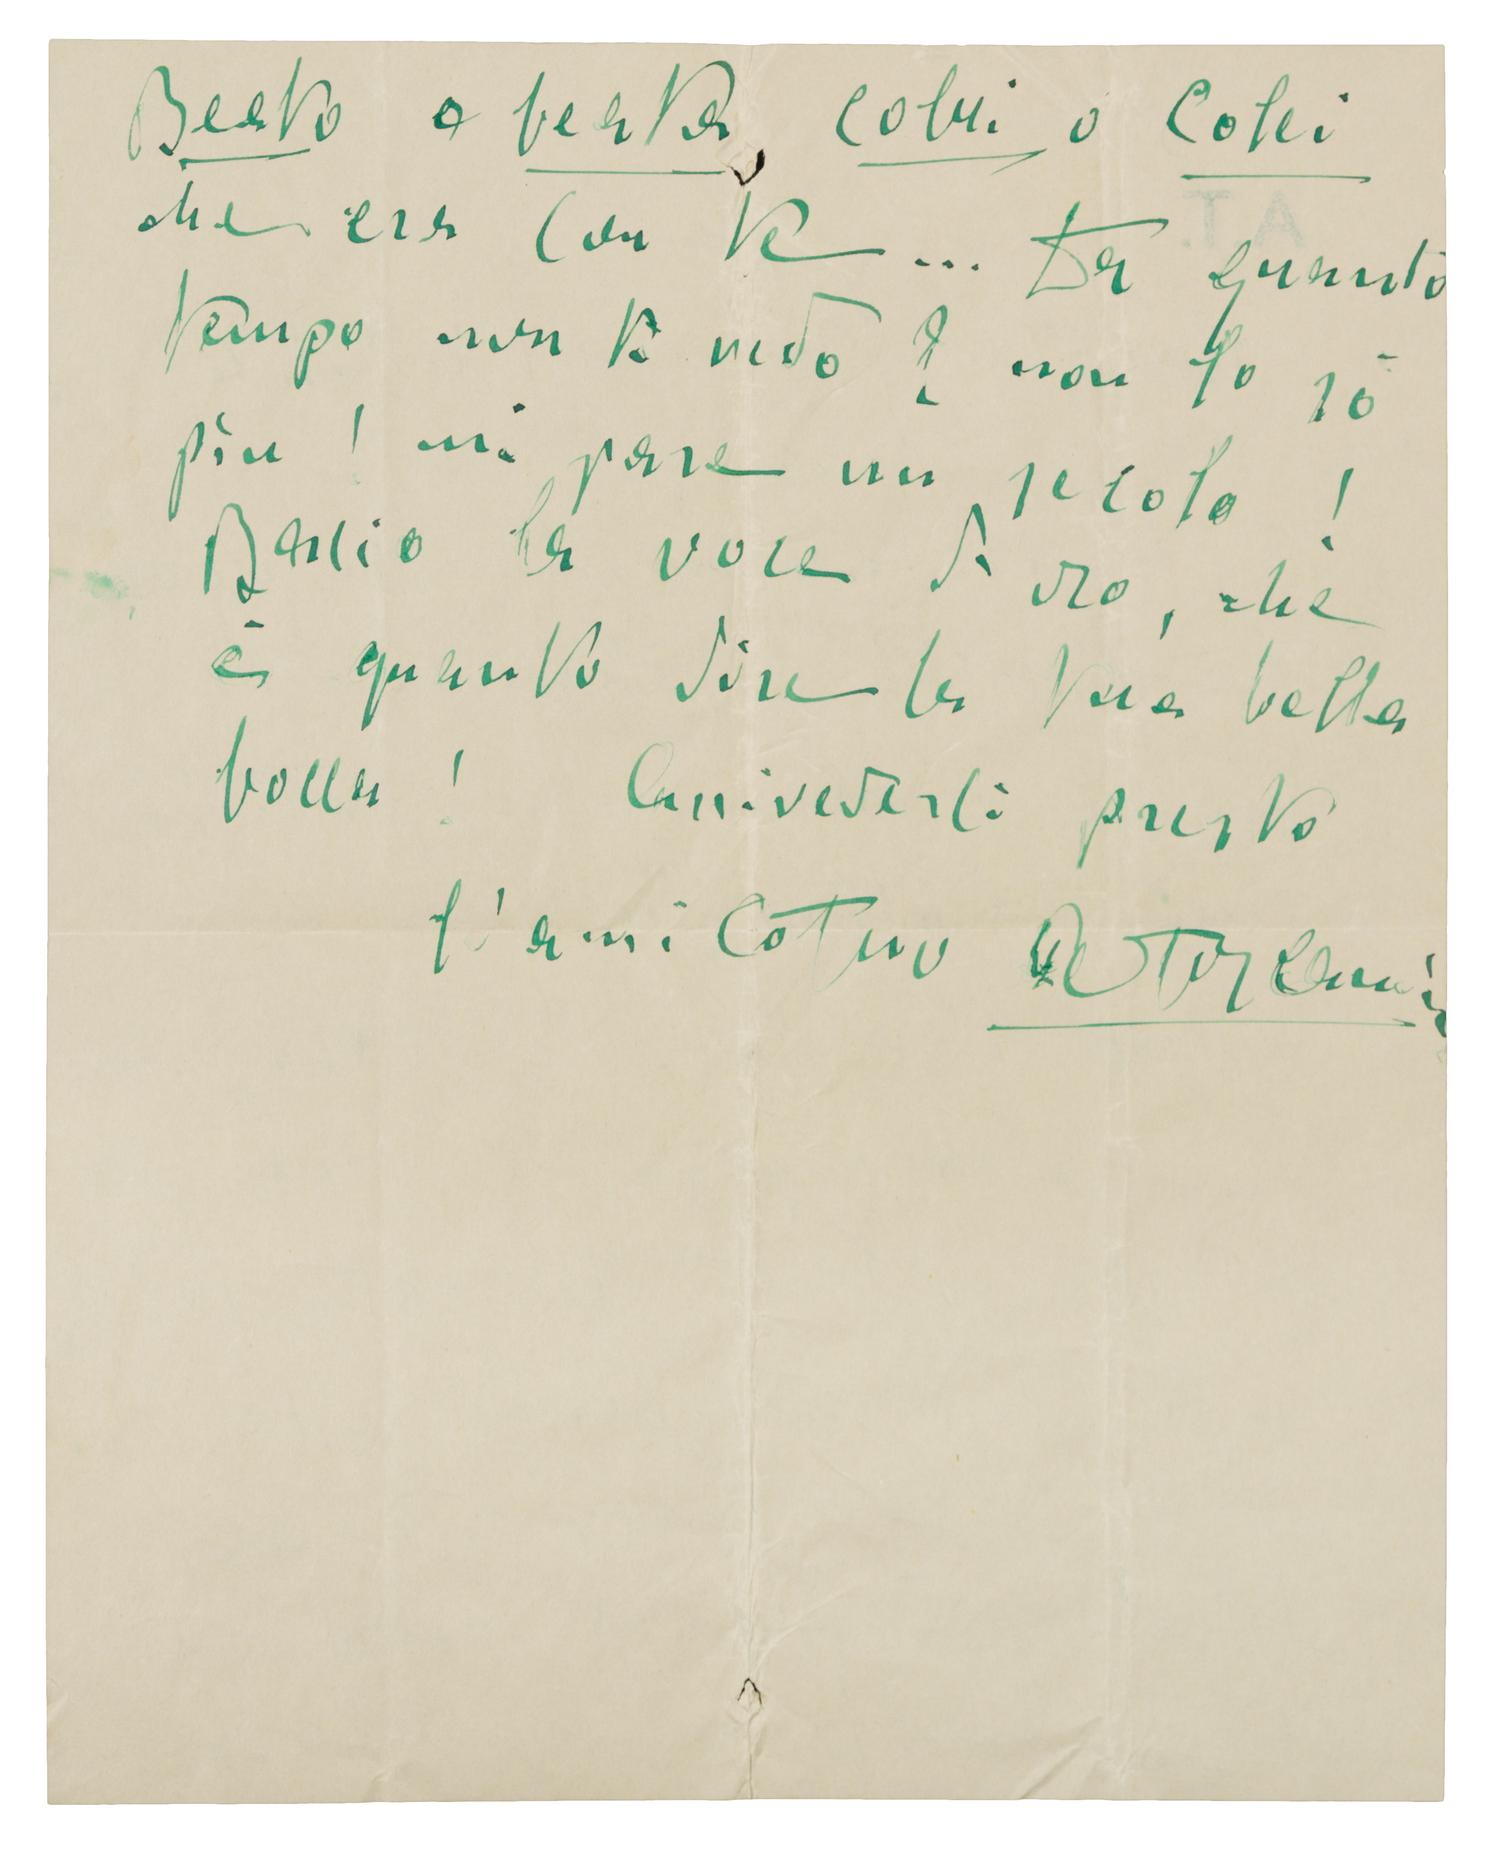 Beato o beata, colui o Colei
che era con te ... Da quanto
tempo non ti vedo? non lo sò
più! mi pare un secolo!
Bacio la voce d'oro, che
è quanto dire la tua bella
bocca! Arrivederci presto
l'amico tuo AToscanini
A.T.